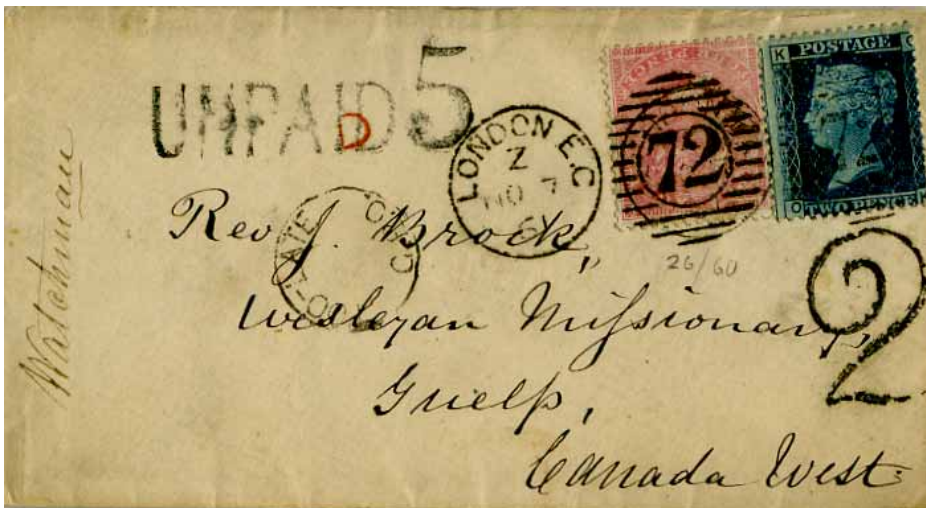 UNPAID 5
D
LONDON E.C
Z
NO 7
61
72
POSTAGE
K
O
TWO PENCE
26/60
TOO-LATE
2
Watchman
Rev J. Brock,
Wesleyan Missionary,
Guelp,
Canada West